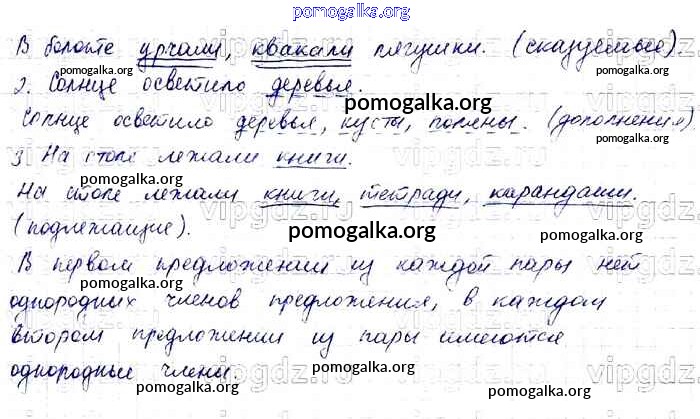 pomogalka.org
В болоте урчали, квакали лягушки. (сказуемые).
pomogalka.org pomogalka.org
2. Солнце осветило деревья.
pomogalka.org
Солнце осветило деревья, кусты, поляны. (дополнения)
pomogalka.org
3. На столе лежали книги.
pomogalka.org
На столе лежали книги, тетради, карандаши.
vipgdz.ru vipgdz.ru
(подлежащие). pomogalka.org pomogalka.org
В первом предложении из каждой пары нет
однородных членов предложения, в каждом
pomogalka.org pomogalka.org
втором предложении из пары имеются
vipgdz.ru vipgdz.ru
однородные члены.
pomogalka.org pomogalka.org